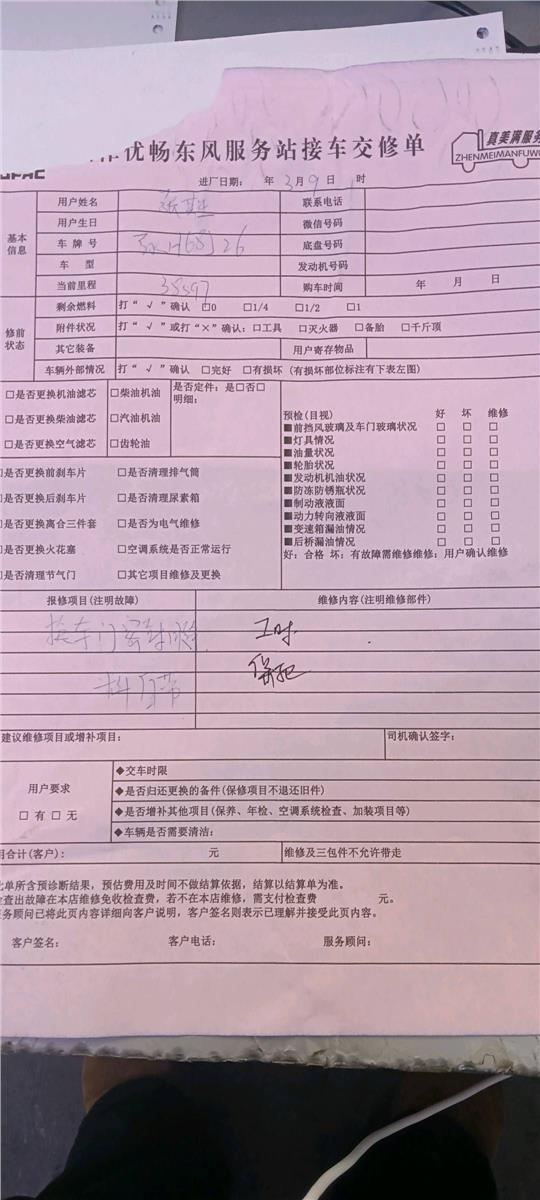 优畅东风服务站接车交修单
真美满服务
ZHENMEIMANFUWU
进厂日期： 年 3月9日 时
基本信息
用户姓名 联系电话
用户生日 微信号码
车牌号 底盘号码
车型 发动机号码
当前里程 38597 购车时间 年 月 日
修前状态
剩余燃料 打“√”确认 □0 □1/4 □1/2 □1
附件状况 打“√”或打“×”确认：□工具 □灭火器 □备胎 □千斤顶
其它装备 用户寄存物品
车辆外部情况 打“√”确认 □完好 □有损坏（有损坏部位标注有下表左图）
□是否更换机油滤芯 □柴油机油 是否定件：是□否□
明细：
□是否更换柴油滤芯 □汽油机油
□是否更换空气滤芯 □齿轮油
预检(目视) 好 坏 维修
■前挡风玻璃及车门玻璃状况 □ □ □
■灯具情况 □ □ □
■油量状况 □ □ □
■轮胎状况 □ □ □
■发动机机油状况 □ □ □
■防冻防锈瓶状况 □ □ □
■制动液液面 □ □ □
■动力转向液液面 □ □ □
■变速箱漏油情况 □ □ □
■后桥漏油情况 □ □ □
好：合格 坏：有故障需维修维修：用户确认维修
□是否更换前刹车片 □是否清理排气筒
□是否更换后刹车片 □是否清理尿素箱
□是否更换离合三件套 □是否为电气维修
□是否更换火花塞 □空调系统是否正常运行
□是否清理节气门 □其它项目维修及更换
报修项目(注明故障) 维修内容(注明维修部件)
换车门密封胶 工时
料自带
建议维修项目或增补项目： 司机确认签字：
用户要求
□有 □无
◆交车时限
◆是否归还更换的备件(保修项目不退还旧件)
◆是否增补其他项目(保养、年检、空调系统检查、加装项目等)
◆车辆是否需要清洁：
用合计(客户)： 元 维修及三包件不允许带走
此单所含预诊断结果，预估费用及时间不做结算依据，结算以结算单为准。
检查出故障在本店维修免收检查费，若不在本店维修，需支付检查费 元。
服务顾问已将此页内容详细向客户说明，客户签名则表示已理解并接受此页内容。
客户签名： 客户电话： 服务顾问：